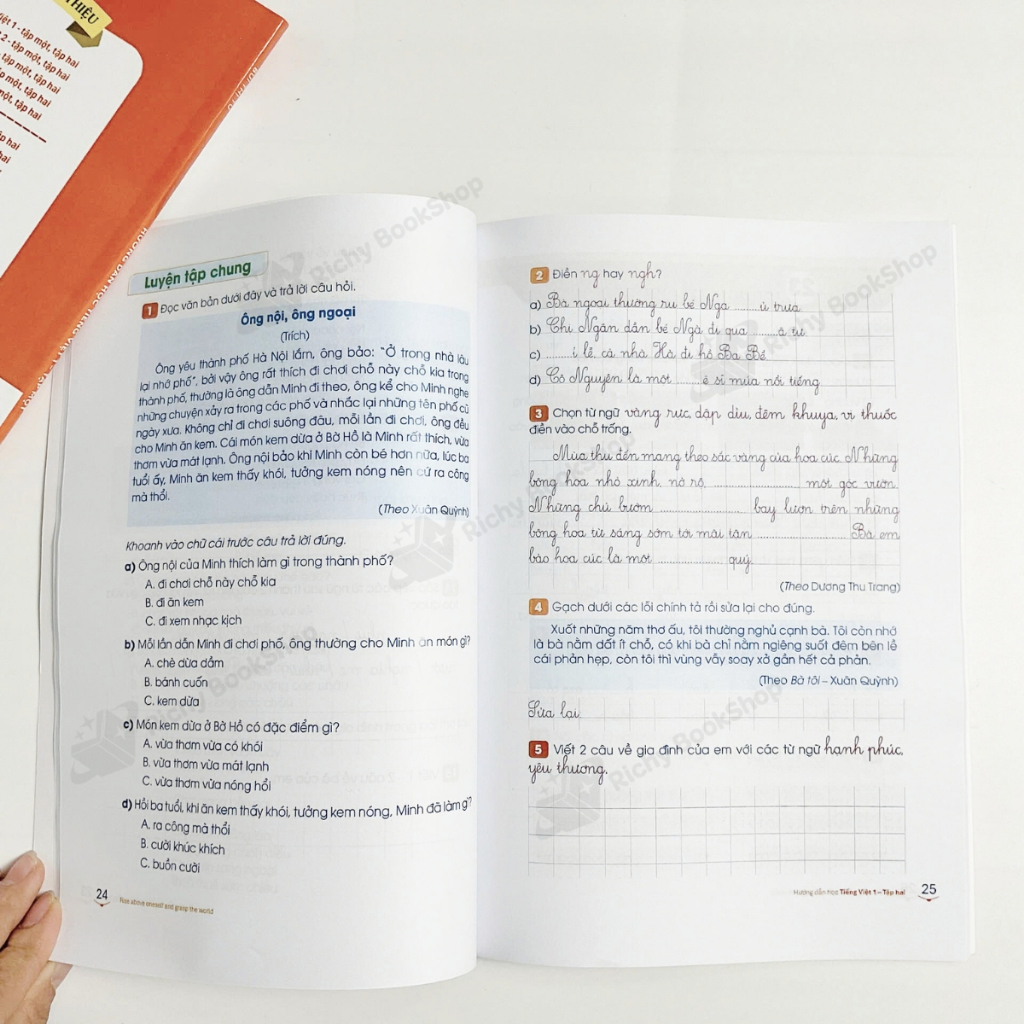 THIỆU
iệt 1 - tập một, tập hai
2 - tập một, tập hai
tập một, tập hai
một, tập hai
một, tập hai
tập hai
hai
Luyện tập chung
1 Đọc văn bản dưới đây và trả lời câu hỏi.
Ông nội, ông ngoại
(Trích)
Ông yêu thành phố Hà Nội lắm, ông bảo: "Ở trong nhà lâu
lại nhớ phố", bởi vậy ông rất thích đi chơi chỗ này chỗ kia trong
thành phố, thường là ông dẫn Minh đi theo, ông kể cho Minh nghe
những chuyện xảy ra trong các phố và nhắc lại những tên phố cũ
ngày xưa. Không chỉ đi chơi suông đâu, mỗi lần đi chơi, ông đều
cho Minh ăn kem. Cái món kem dừa ở Bờ Hồ là Minh rất thích, vừa
thơm vừa mát lạnh. Ông nội bảo khi Minh còn bé hơn nữa, lúc ba
tuổi ấy, Minh ăn kem thấy khói, tưởng kem nóng nên cứ ra công
mà thổi.
(Theo Xuân Quỳnh)
Khoanh vào chữ cái trước câu trả lời đúng.
a) Ông nội của Minh thích làm gì trong thành phố?
A. đi chơi chỗ này chỗ kia
B. đi ăn kem
C. đi xem nhạc kịch
b) Mỗi lần dẫn Minh đi chơi phố, ông thường cho Minh ăn món gì?
A. chè dừa dầm
B. bánh cuốn
C. kem dừa
c) Món kem dừa ở Bờ Hồ có đặc điểm gì?
A. vừa thơm vừa có khói
B. vừa thơm vừa mát lạnh
C. vừa thơm vừa nóng hổi
d) Hồi ba tuổi, khi ăn kem thấy khói, tưởng kem nóng, Minh đã làm gì?
A. ra công mà thổi
B. cười khúc khích
C. buồn cười
24
Rise above oneself and grasp the world
2 Điền ng hay ngh?
a) Bà ngoại thường ru bé Ngà ........ ủ trưa
b) Chị Ngân dẫn bé Ngà đi qua ........ ã tư
c) ........ ỉ lễ, cả nhà Hà đi hồ Ba Bể
d) Cô Nguyên là một ........ ệ sĩ múa nổi tiếng
3 Chọn từ ngữ vàng rực, dập dìu, đêm khuya, vị thuốc
điền vào chỗ trống.
Mùa thu đến mang theo sắc vàng của hoa cúc. Những
bông hoa nhỏ xinh, nở rộ, .................... một góc vườn.
Những chú bướm .................... bay lượn trên những
bông hoa từ sáng sớm tới mãi tận .................... Bà em
bảo hoa cúc là một .................... quý.
(Theo Dương Thu Trang)
4 Gạch dưới các lỗi chính tả rồi sửa lại cho đúng.
Xuốt những năm thơ ấu, tôi thường nghủ cạnh bà. Tôi còn nhớ
là bà nằm dất ít chỗ, có khi bà chỉ nằm ngiêng suốt đêm bên lề
cái phản hẹp, còn tôi thì vùng vẫy soay xở gần hết cả phản.
(Theo Bà tôi – Xuân Quỳnh)
Sửa lại
5 Viết 2 câu về gia đình của em với các từ ngữ hạnh phúc,
yêu thương.
Hướng dẫn học Tiếng Việt 1 – Tập hai
25
Richy BookShop
Richy BookShop
Richy BookShop
Richy BookShop
Richy BookShop